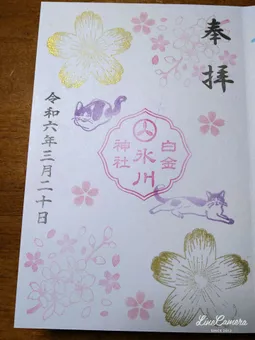 奉拝
白金
氷川
神社
令和六年三月二十日
LineCamera